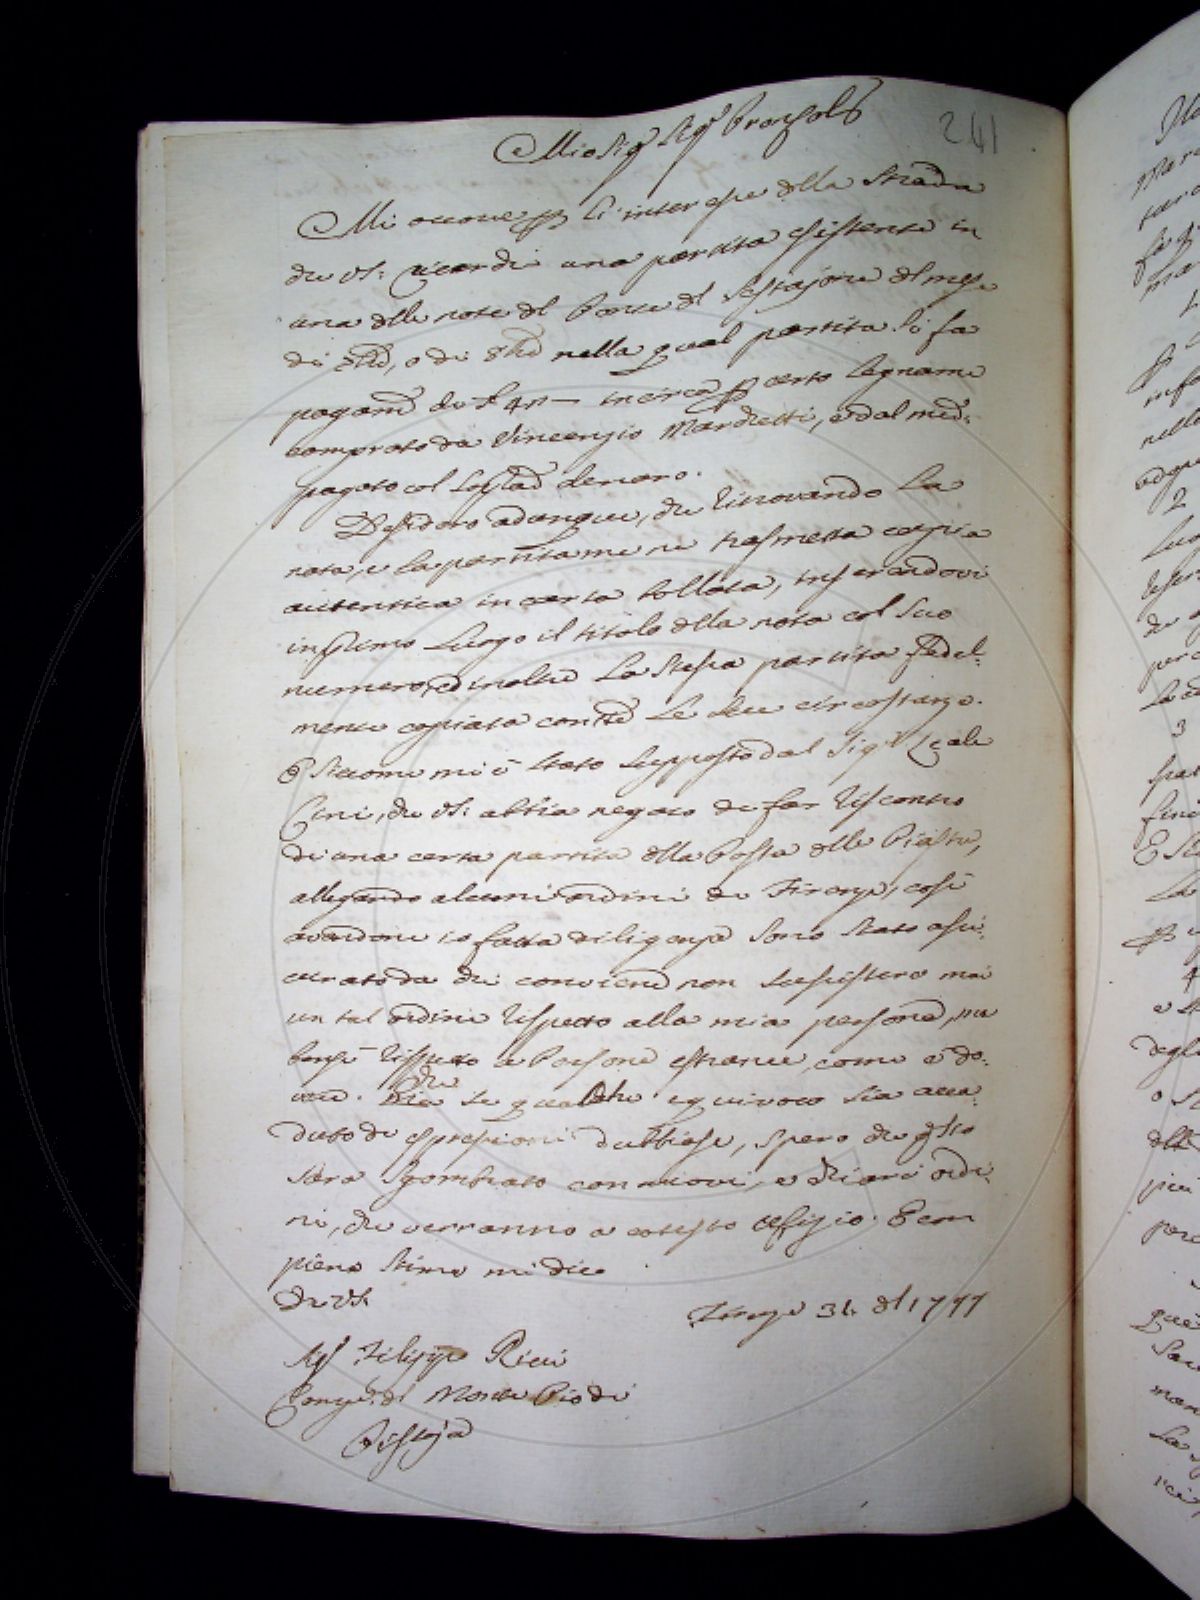 241
Mio Sig.r Sig.r
Mi occorre p l'interesse della Strada
che VS: ricerchi una partita esistente in
una delle note del Ponte del Sestajone del mese
di 7bre, o di 8bre nella qual partita si fa
pagam.to di £ 47 — in circa p certo Legname
comprato da Vincenzio Marchetti, e dal med:
pagato col denaro.
Desidero adunque, che ritrovando La
nota, e La partita me ne trasmetta copia
autentica in carta bollata, inserendovi
in primo Luogo il titolo della nota col Suo
numero, ed inoltre La Stessa partita fedel:
mente copiata con Le due circostanze.
E Siccome mi è Stato Supposto dal Sig.r
Cini, che VS: abbia negato di far riscontro
di una certa partita della Posta delle Piastre,
allegando alcuni ordini di Firenze, così
avendone io fatta diligenza Sono Stato assi:
curato da chi conviene non Sussistere mai
un tal ordine rispetto alla mia persona, ma
bensì rispetto a Persone estranee, come è do:
vere. che
Se qualche equivoco Sia acca:
duto di espressioni dubbiose, Spero che q.sto
Sarà Sgombrato con nuovi, e chiari ordi:
ni, che verranno a cotesto Uffizio. E con
piena Stima mi dico
Di VS.
Firenze 31. del 1777
Sig.r Filippo Ricci
del Monte Pio di
Pistoja